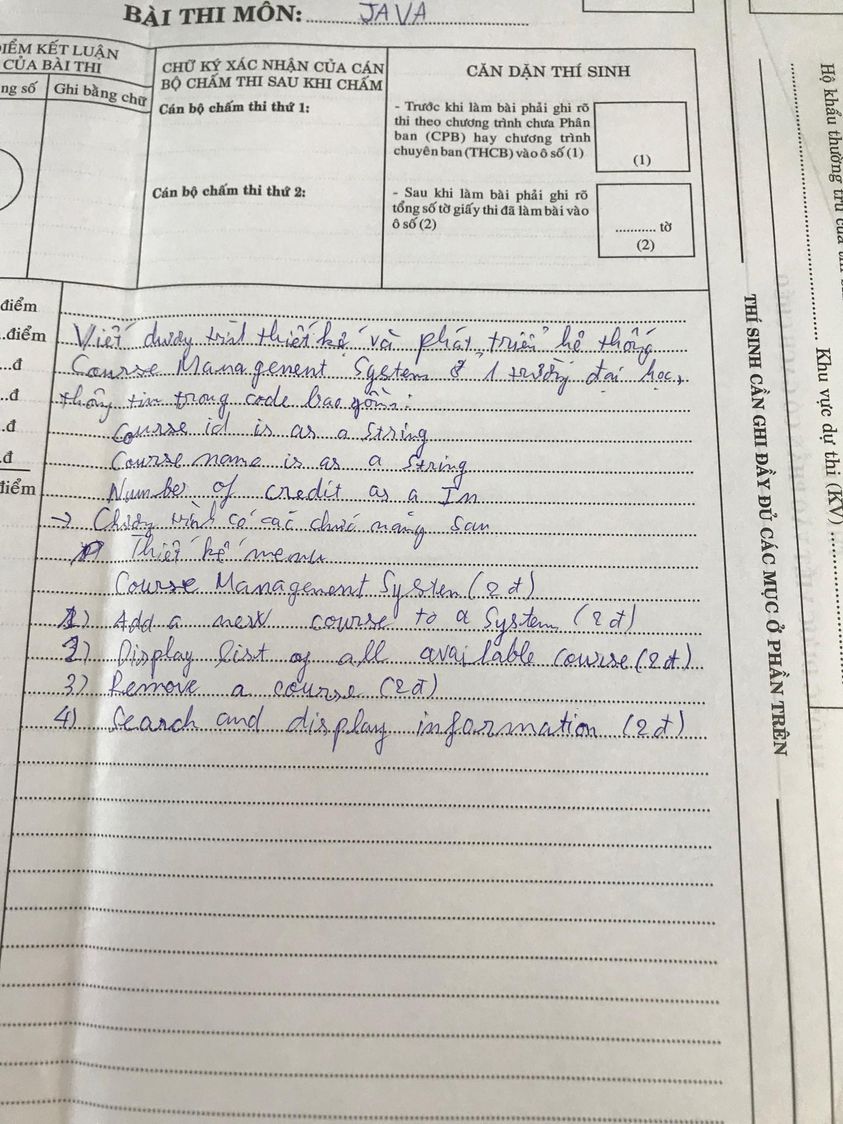 BÀI THI MÔN: JAVA
IỂM KẾT LUẬN
CỦA BÀI THI
ng số
Ghi bằng chữ
CHỮ KÝ XÁC NHẬN CỦA CÁN
BỘ CHẤM THI SAU KHI CHẤM
Cán bộ chấm thi thứ 1:
Cán bộ chấm thi thứ 2:
CĂN DẶN THÍ SINH
- Trước khi làm bài phải ghi rõ
thi theo chương trình chưa Phân
ban (CPB) hay chương trình
chuyên ban (THCB) vào ô số (1)
(1)
- Sau khi làm bài phải ghi rõ
tổng số tờ giấy thi đã làm bài vào
ô số (2)
............ tờ
(2)
điểm
..điểm
...đ
..đ
.đ
.đ
điểm
Viết chương trình thiết kế và phát triển hệ thống
Course Management System ở 1 trường đại học,
thông tin trong code bao gồm:
Course id is as a String
Course name is as a String
Number of credit as a In
→ Chương trình có các chức năng sau
Thiết kế menu
Course Management System (2đ)
1) Add a new course to a System (2đ)
2) Display list of all available course (2đ)
3) Remove a course (2đ)
4) Search and display information (2đ)
THÍ SINH CẦN GHI ĐẦY ĐỦ CÁC MỤC Ở PHẦN TRÊN
Hộ khẩu thường trú của
Khu vực dự thi (KV)